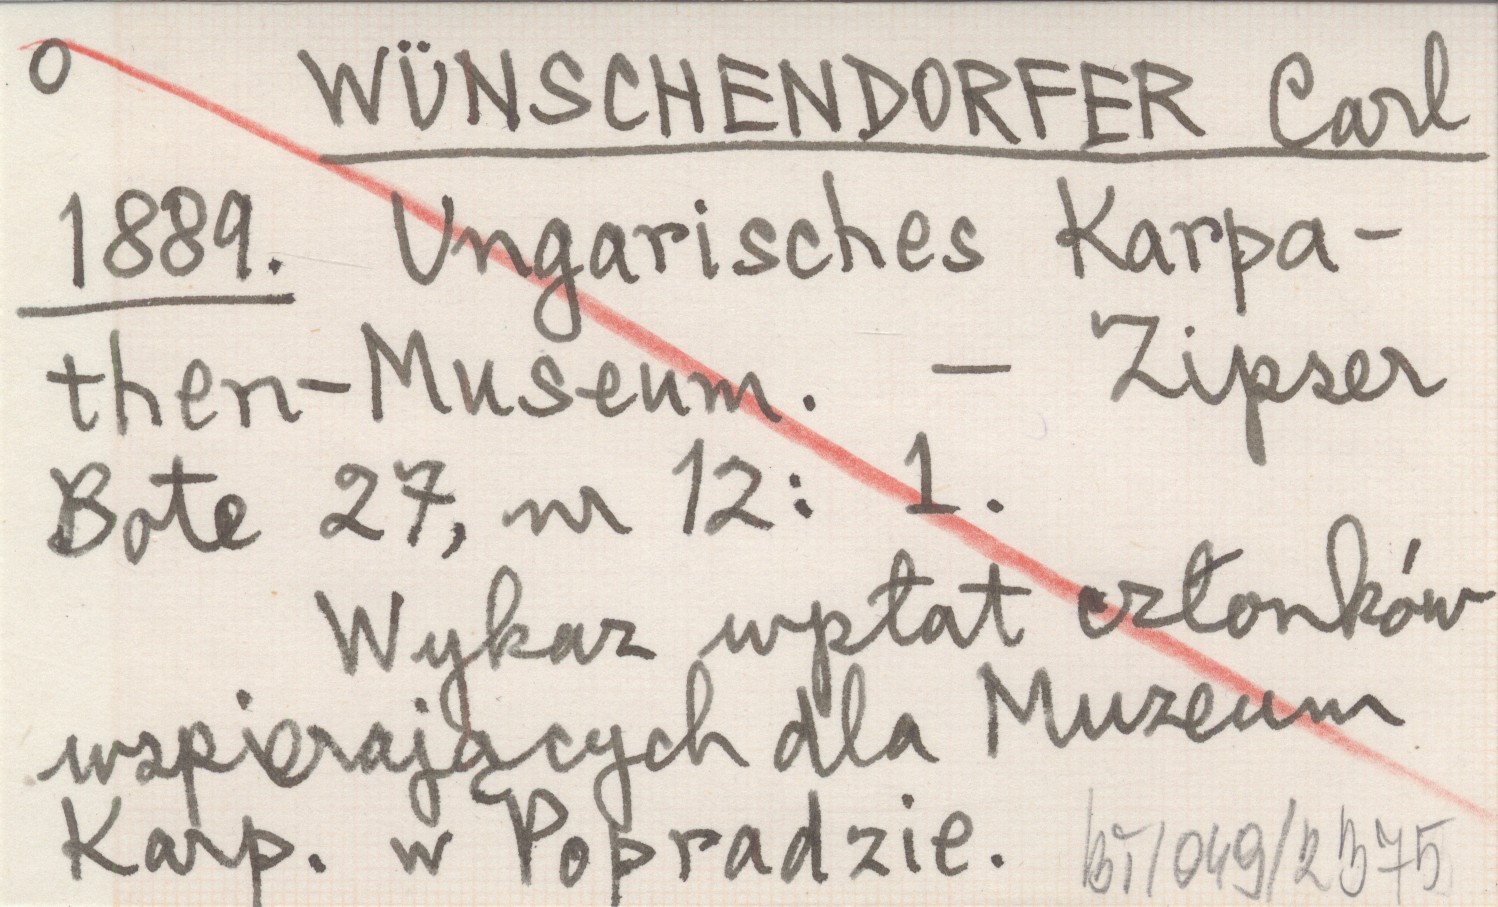 O WÜNSCHENDORFER Carl
1889. Ungarisches Karpa-
then-Museum. — Zipser
Bote 27, nr 12: 1.
Wykaz wpłat członków
wspierających dla Muzeum
Karp. w Popradzie.
BT/049/2375